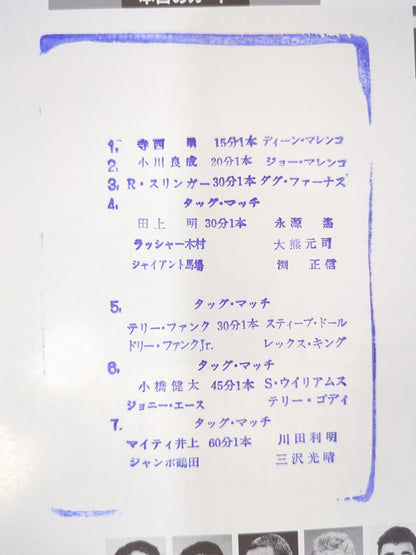 本日のカード
1. 寺西 勇 15分1本 ディーン・マレンコ
2. 小川良成 20分1本 ジョー・マレンコ
3. R・スリンガー 30分1本 ダグ・ファーナス
4. タッグ・マッチ
田上 明 30分1本 永源 遙
ラッシャー木村 大熊元司
ジャイアント馬場 渕 正信
5. タッグ・マッチ
テリー・ファンク 30分1本 スティーブ・ドール
ドリー・ファンクJr. レックス・キング
6. タッグ・マッチ
小橋健太 45分1本 S・ウイリアムス
ジョニー・エース テリー・ゴディ
7. タッグ・マッチ
マイティ井上 60分1本 川田利明
ジャンボ鶴田 三沢光晴